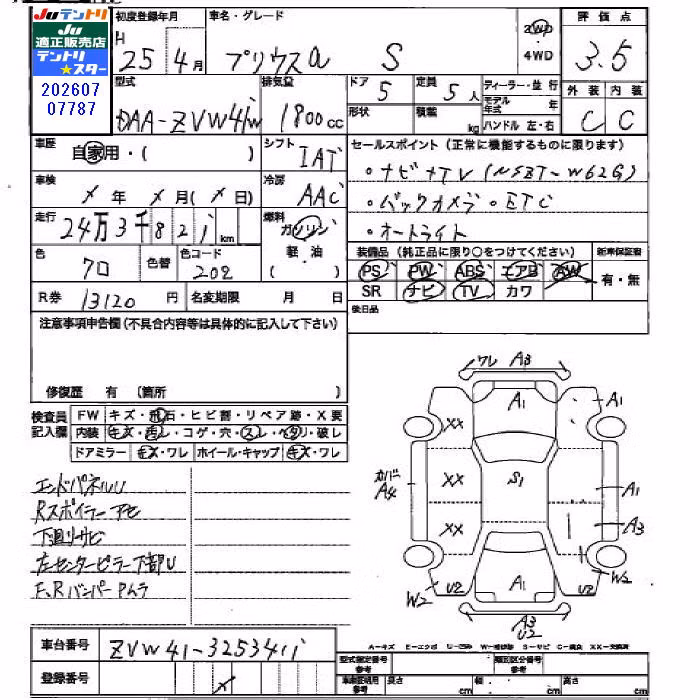 Juテントリ
Ju
適正販売店
テントリ
★スター
202607
07787
初度登録年月
H
25年4月
車名・グレード
プリウスα S
2WD
4WD
評価点
3.5
型式
DAA-ZVW41W
排気量
1800cc
ドア
5
定員
5人
形状
積載
kg
ディーラー・並行
モデル年式 年
ハンドル 左・右
外装
C
内装
C
車歴
自家用・( )
シフト
IAT
セールスポイント (正常に機能するものに限ります)
・ナビ+TV (NSZT-W62G)
・バックカメラ・ETC
・オートライト
車検
メ年 メ月(メ日)
冷房
AAC
走行
24万3千821km
燃料
ガソリン
軽油
( )
色
クロ
色替
色コード
202
装備品 (純正品に限り○をつけてください)
PS PW ABS エアB AW
SR ナビ TV カワ
新車保証書
有・無
R券 13120円
名変期限 月 日
後日品
注意事項申告欄 (不具合内容等は具体的に記入して下さい)
修復歴 有 (箇所 )
検査員
記入欄
FW キズ・飛石・ヒビ割・リペア跡・X要
内装 キズ・汚レ・コゲ・穴・スレ・ヘタリ・破レ
ドアミラー キズ・ワレ ホイール・キャップ キズ・ワレ
エンドパネルU
Rスポイラーアセ
下廻りサビ
左センターピラー下部U
F、RバンパーPムラ
ワレ A3
A1
A1
XX
カバー
A4
XX
S1
A1
XX
A3
W2
W2
U2
A1
U2
A3
U2
A-キズ E-エクボ U-凹み W-補修跡 S-サビ C-腐食 XX-交換済
車台番号
ZVW41-3253411
登録番号
型式指定番号
参考
類別区分番号
参考
車庫証明用
参考
長さ cm
幅 cm
高さ cm